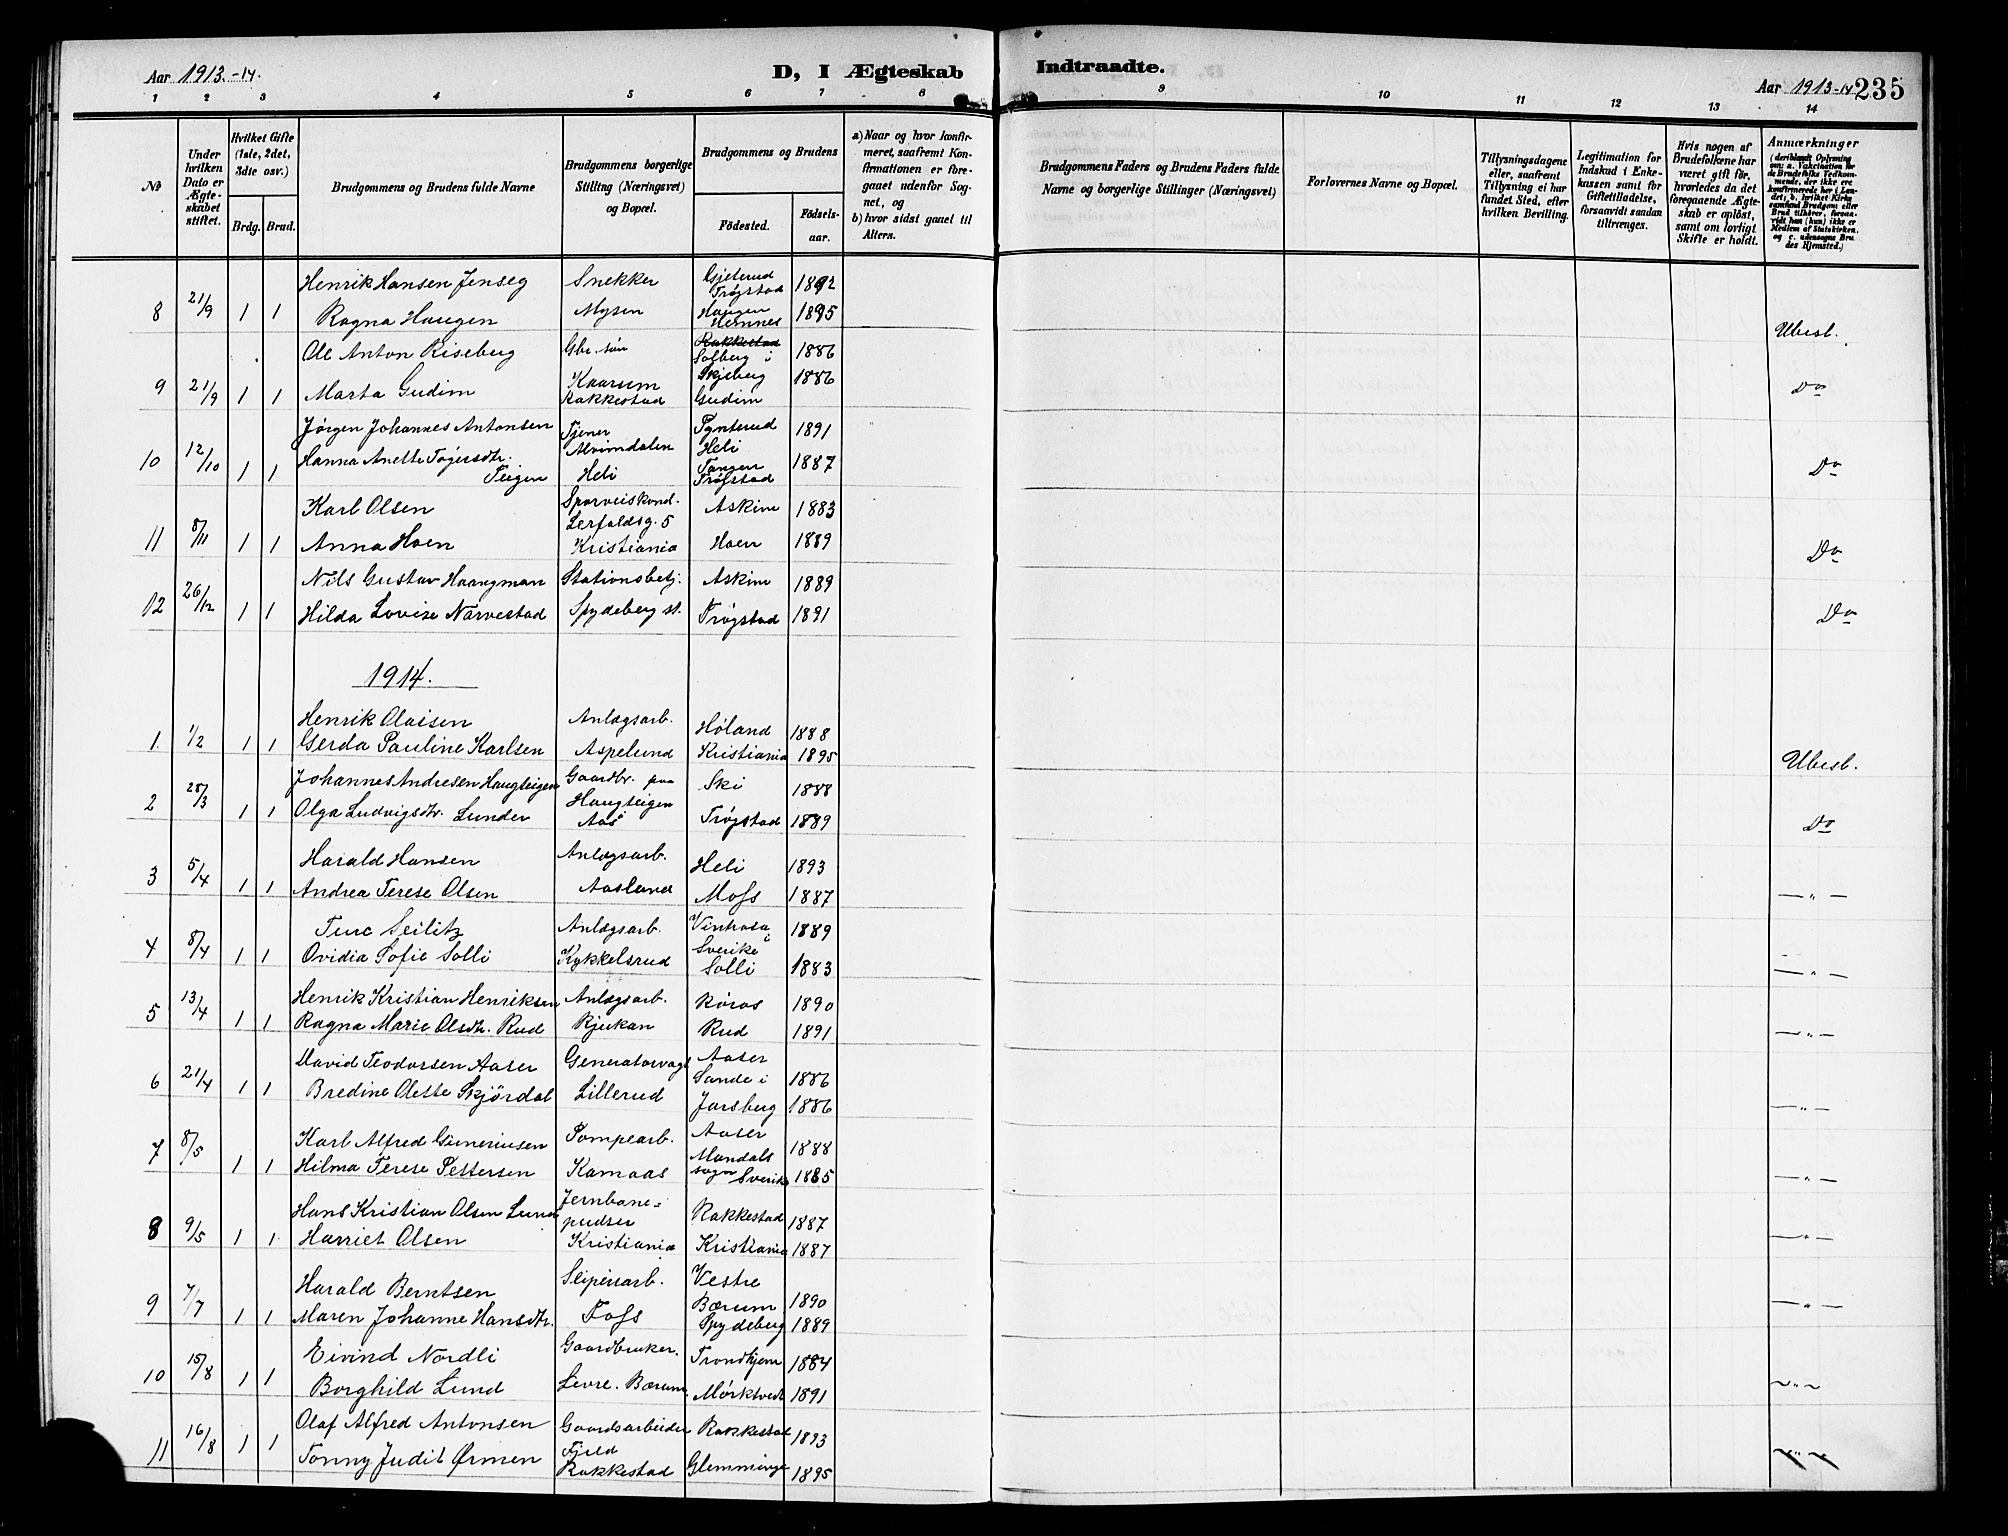 Aar 1913.-14.
D, I Ægteskab Indtraadte.
Aar 1913-14 235
1 2 3 4 5 6 7 8 9 10 11 12 13 14
No
Under hvilken Dato er Ægteskabet stiftet.
Hvilket Gifte (1ste, 2det, 3die osv.)
Brdg. Brud.
Brudgommens og Brudens fulde Navne
Brudgommens borgerlige Stilling (Næringsvei) og Bopæl.
Brudgommens og Brudens
Fødested.
Fødselsaar.
a) Naar og hvor konfirmeret, saafremt Konfirmationen er foregaaet udenfor Sognet, og
b) hvor sidst gaaet til Alters.
Brudgommens Faders og Brudens Faders fulde Navne og borgerlige Stillinger (Næringsvei)
Forlovernes Navne og Bopæl.
Tillysningsdagene eller, saafremt Tillysning ei har fundet Sted, efter hvilken Bevilling.
Legitimation for Indskud i Enkekassen samt for Giftetilladelse, forsaavidt saadan tiltrænges.
Hvis nogen af Brudefolkene har været gift før, hvorledes da det foregaaende Ægteskab er opløst, samt om lovligt Skifte er holdt.
Anmærkninger
(deriblandt Oplysning om: a. Vaccination for de Brudefolks Vedkommende, der ikke ere konfirmerede her i Landet; b. hvilket Kirkesamfund Brudgom eller Brud tilhører, forsaavidt han (hun) ikke er Medlem af Statskirken, og c. udensogns Brudes Hjemsted.)
Henrik Hansen Jenseg Snekker Gjeterud Trøgstad 1892
8 21/9 1 1 Ragna Haugen Mysen Haugen Hemnes 1895 Ubesl.
Ole Anton Riseberg Gbr. søn Rakkestad Solberg i 1886
9 21/9 1 1 Marta Gudim Kaarsum Rakkestad Skjeberg Gudim 1886 Do
Jørgen Johannes Antonsen Tjener Tynterud 1891
10 12/10 1 1 Hanna Anette Tøgersdtr. Teigen Alvimdalen Heli Heli Tangen Trøfstad 1887 Do
Karl Olsen Sporveiskond. Askim 1883
11 8/11 1 1 Anna Hoen Lerfaldsg. 5 Kristiania Hoen 1889 Do
Nils Gustav Haangman Stationsbetj. Askim 1889
12 26/12 1 1 Hilda Lovise Narvestad Spydeberg st. Trøgstad 1891 Do
1914.
Henrik Olaisen Anlægsarb. Høland 1888
1 1/2 1 1 Gerda Pauline Karlsen Aspelund Kristiania 1895 Ubesl.
Johannes Andresen Haugteigen Gaardbr. paa Ski 1888
2 28/3 1 1 Olga Ludvigsdtr. Lunder Haugteigen Aas Trøgstad 1889 Do
Harald Hansen Anlægsarb. Heli 1893
3 5/4 1 1 Andrea Terese Olsen Aaslund Mofs 1887 — " —
Ture Seilitz Anlægsarb. i Sverike 1889
4 8/4 1 1 Ovidia Sofie Solli Kykkelsrud Solli 1883 — " —
Henrik Kristian Henriksen Anlægsarb. Røros 1890
5 13/4 1 1 Ragna Marie Olsdtr. Rud Rjukan Rud 1891 — " —
David Teodorsen Aaser Generatorvagt Aaser 1886
6 21/4 1 1 Bredine Olette Skjørdal Lillerud Sande i Jarsberg 1886 — " —
Karl Alfred Guneriusen Pompearb. Aaser 1888
7 8/5 1 1 Hilma Terese Pettersen Kamaas Mandals sogn Sverike 1885 — " —
Hans Kristian Olsen Lund Jernbane= pudser Rakkestad 1887
8 9/5 1 1 Harriet Olsen Kristiania Kristiania 1887 — " —
Harald Berntsen Sliperiarb. Vestre Bærum 1890
9 7/7 1 1 Maren Johanne Hansdtr. Fofs Spydeberg 1889 — " —
Eivind Nordli Gaardbruker. Trondhjem 1884
10 15/8 1 1 Borghild Lund Levre. Bærum. Mørktvedt 1891 — " —
Olaf Alfred Antonsen Gaardsarbeider Rakkestad 1893
11 16/8 1 1 Tonny Judit Ørmen Fjeld Rakkestad Glemminge 1895 — " —